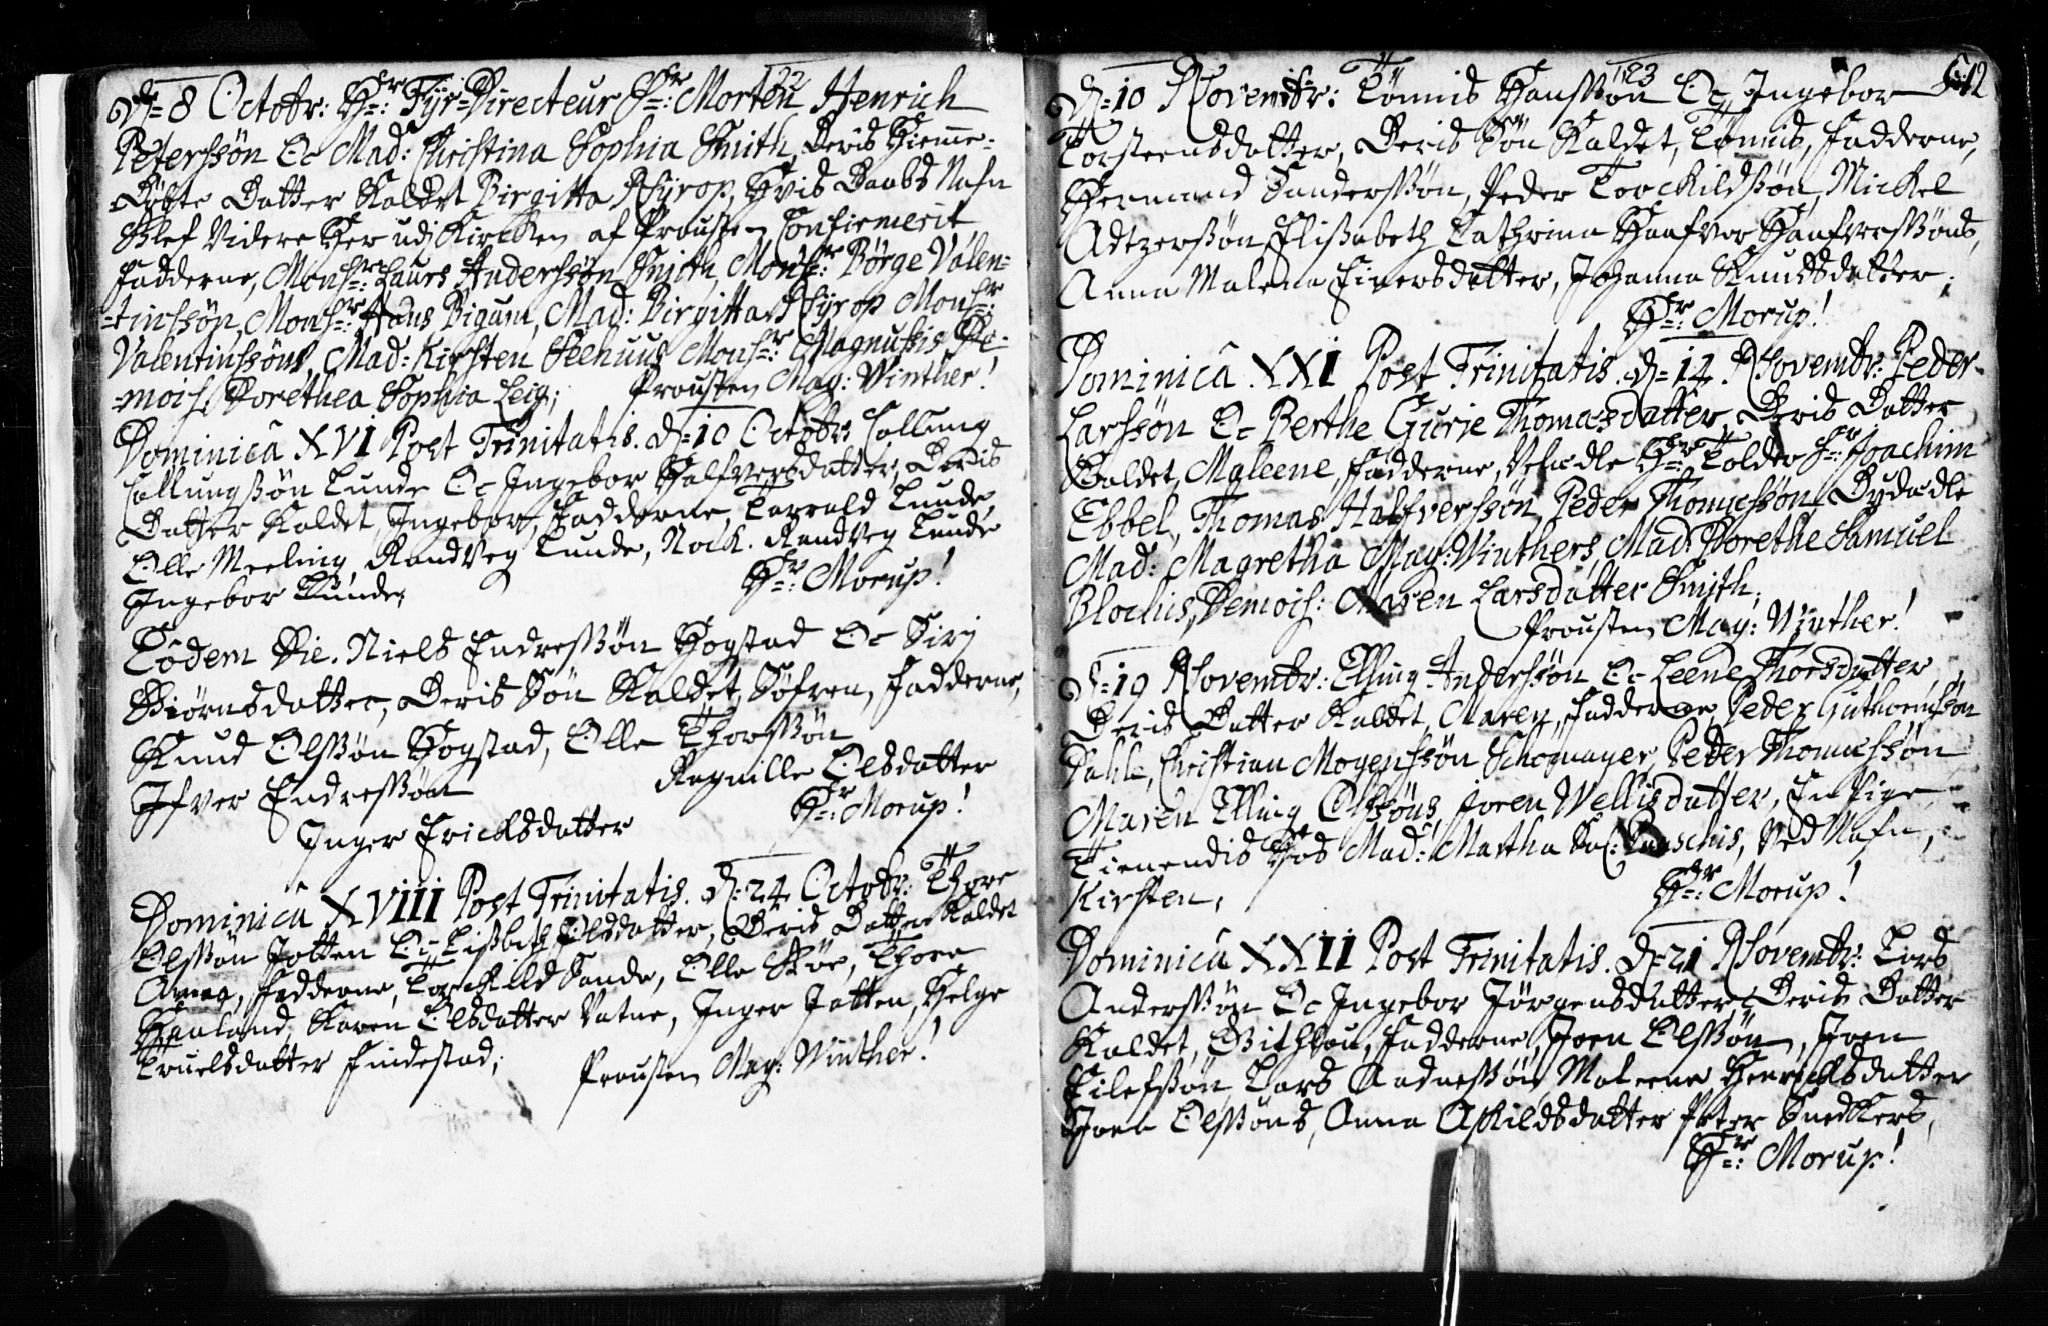 22
D=8 Octobr: Hr: Fÿr=Directeur Sr: Morten Henrich
Peterssøn Oc Mad: Christina Sophia Smith, Deris Hiemme-
Døbte Datter Kaldet Birgitta Nÿrop, Hvis Daabs Nafn
Blef Videre Her udj Kircken af Prousten Confirmerit,
Fadderne, Monsr: Laurs Anderssøn Smith, Monsr: Børge Valen-
-tinssøn, Monsr: Hans Bigum, Mad: Birgitta Nÿrop Monsr:
Valentinssøns, Mad: Kirsten Seehuus Monsr: Magnussis De-
-mois: Dorethea Sophia Leig; Prousten Mag: Winther!
Dominica XVI Post Trinitatis. D=10 Octobr: Callung
Callungssøn Lunde Oc Ingebor Halfversdatter, Deris
Datter Kaldet, Ingebor, Fadderne, Torrald Lunde,
Olle Meeling, Randveg Lunde, Nock. Randveg Lunde
Ingebor Lunde; Hr: Morup!
Eodem Die. Niels Endressøn Hogstad Oc Sirj
Biørnsdatter, Deris Søn Kaldet, Søfren, Fadderne,
Knud Olssøn Hogstad, Olle Thorssøn
Ifver Endressøn Ragnille Olsdatter
Inger Ericksdatter Hr: Morup!
Dominica XVIII Post Trinitatis. D=24 Octobr: Thore
Olssøn Jotten Oc Lisbeth Olsdatter, Deris Datter Kaldet
Anna, Fadderne, Torckild Sande, Olle Thore
Haaland, Karen Olsdatter Vatne, Inger Jatten, Helge
Truelsdatter Findestad; Prousten Mag: Winther!
123
D=10 Novembr: Tønnis Hanssøn Oc Ingebor
Torsteensdatter, Deris Søn Kaldet, Tønnis, Fadderne,
Hermand Sanderssøn, Peder Torckildssøn, Mickel
Adtzerssøn Elisabeth Cathrina Haafvor Haafverssøns,
Anna Malena Eiversdatter, Johanna Knudsdatter;
Hr: Morup!
Dominica XXI Post Trinitatis. D=14 Novembr: Peder
Larssøn Oc Berthe Gurje Thomæsdatter, Deris Datter
Kaldet, Maleene, Fadderne, Velædle Hr: Tolder Sr: Joachim
Ebbel, Thomas Halfverssøn, Peder Thomæssøn Dydædle
Mad: Magretha Mag: Winthers, Mad: Dorethe Samuel
Blochis, Demois: Maren Larsdatter Smith;
Prousten Mag: Winther!
D=19 Novembr: Elling Anderssøn Oc Leene Thorsdatter,
Deris Datter Kaldet, Maren, Fadderne Peder Guthormssøn
Dahle, Christian Mogenssøn Schomager, Peder Thomæssøn
Maren Elling Olssøns, Joren Wellisdatter, En Pige,
Tienendis Hos Mad: Martha Sal: Ved Nafn,
Kirsten, Hr: Morup!
Dominica XXII Post Trinitatis. D=21 Novembr: Lars
Anderssøn Oc Ingebor Jørgensdatter, Deris Datter
Kaldet, Fadderne, Joen Olssøn, Joen
Eilefssøn, Lars Aadnessøn, Maleene Henricksdatter
Joen Olssøns, Anna Askildsdatter Peter Snedkers,
Hr: Morup!